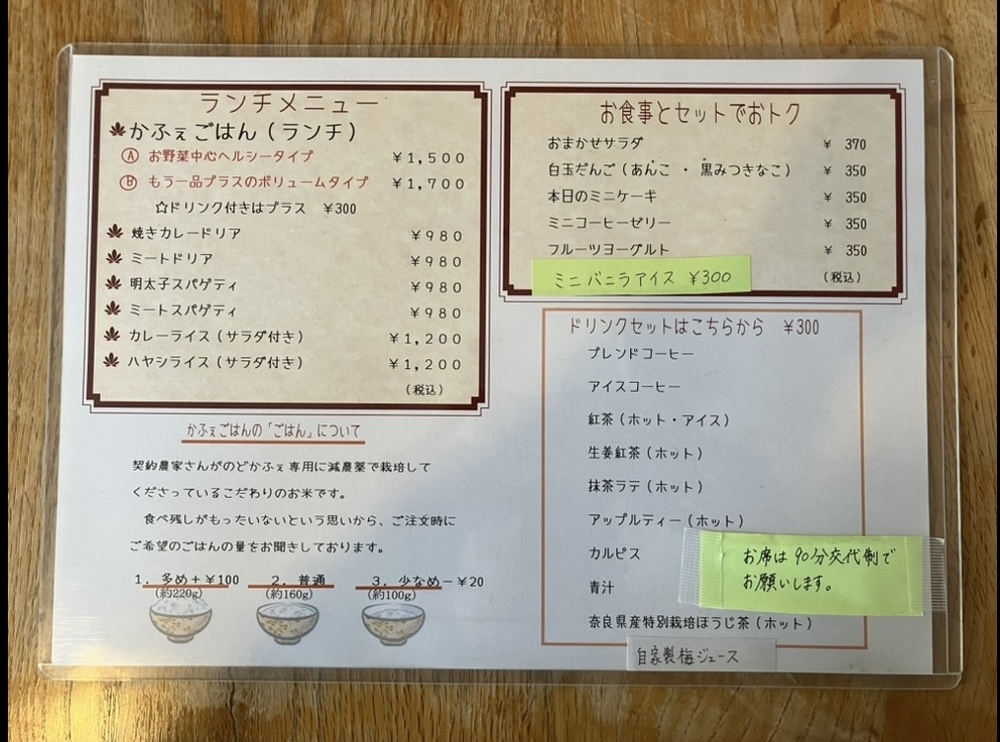 ランチメニュー
かふぇごはん(ランチ)
Ⓐ お野菜中心ヘルシータイプ ¥1,500
Ⓑ もう一品プラスのボリュームタイプ ¥1,700
☆ドリンク付きはプラス ¥300
焼きカレードリア ¥980
ミートドリア ¥980
明太子スパゲティ ¥980
ミートスパゲティ ¥980
カレーライス(サラダ付き) ¥1,200
ハヤシライス(サラダ付き) ¥1,200
(税込)
かふぇごはんの「ごはん」について
契約農家さんがのどかふぇ専用に減農薬で栽培して
くださっているこだわりのお米です。
食べ残しがもったいないという思いから、ご注文時に
ご希望のごはんの量をお聞きしております。
1. 多め+¥100 2. 普通 3. 少なめ−¥20
(約220g) (約160g) (約100g)
お食事とセットでおトク
おまかせサラダ ¥ 370
白玉だんご(あんこ ・ 黒みつきなこ) ¥ 350
本日のミニケーキ ¥ 350
ミニコーヒーゼリー ¥ 350
フルーツヨーグルト ¥ 350
ミニバニラアイス ¥300
(税込)
ドリンクセットはこちらから ¥300
ブレンドコーヒー
アイスコーヒー
紅茶(ホット・アイス)
生姜紅茶(ホット)
抹茶ラテ(ホット)
アップルティー(ホット)
カルピス
青汁
奈良県産特別栽培ほうじ茶(ホット)
自家製梅ジュース
お席は90分交代制で
お願いします。